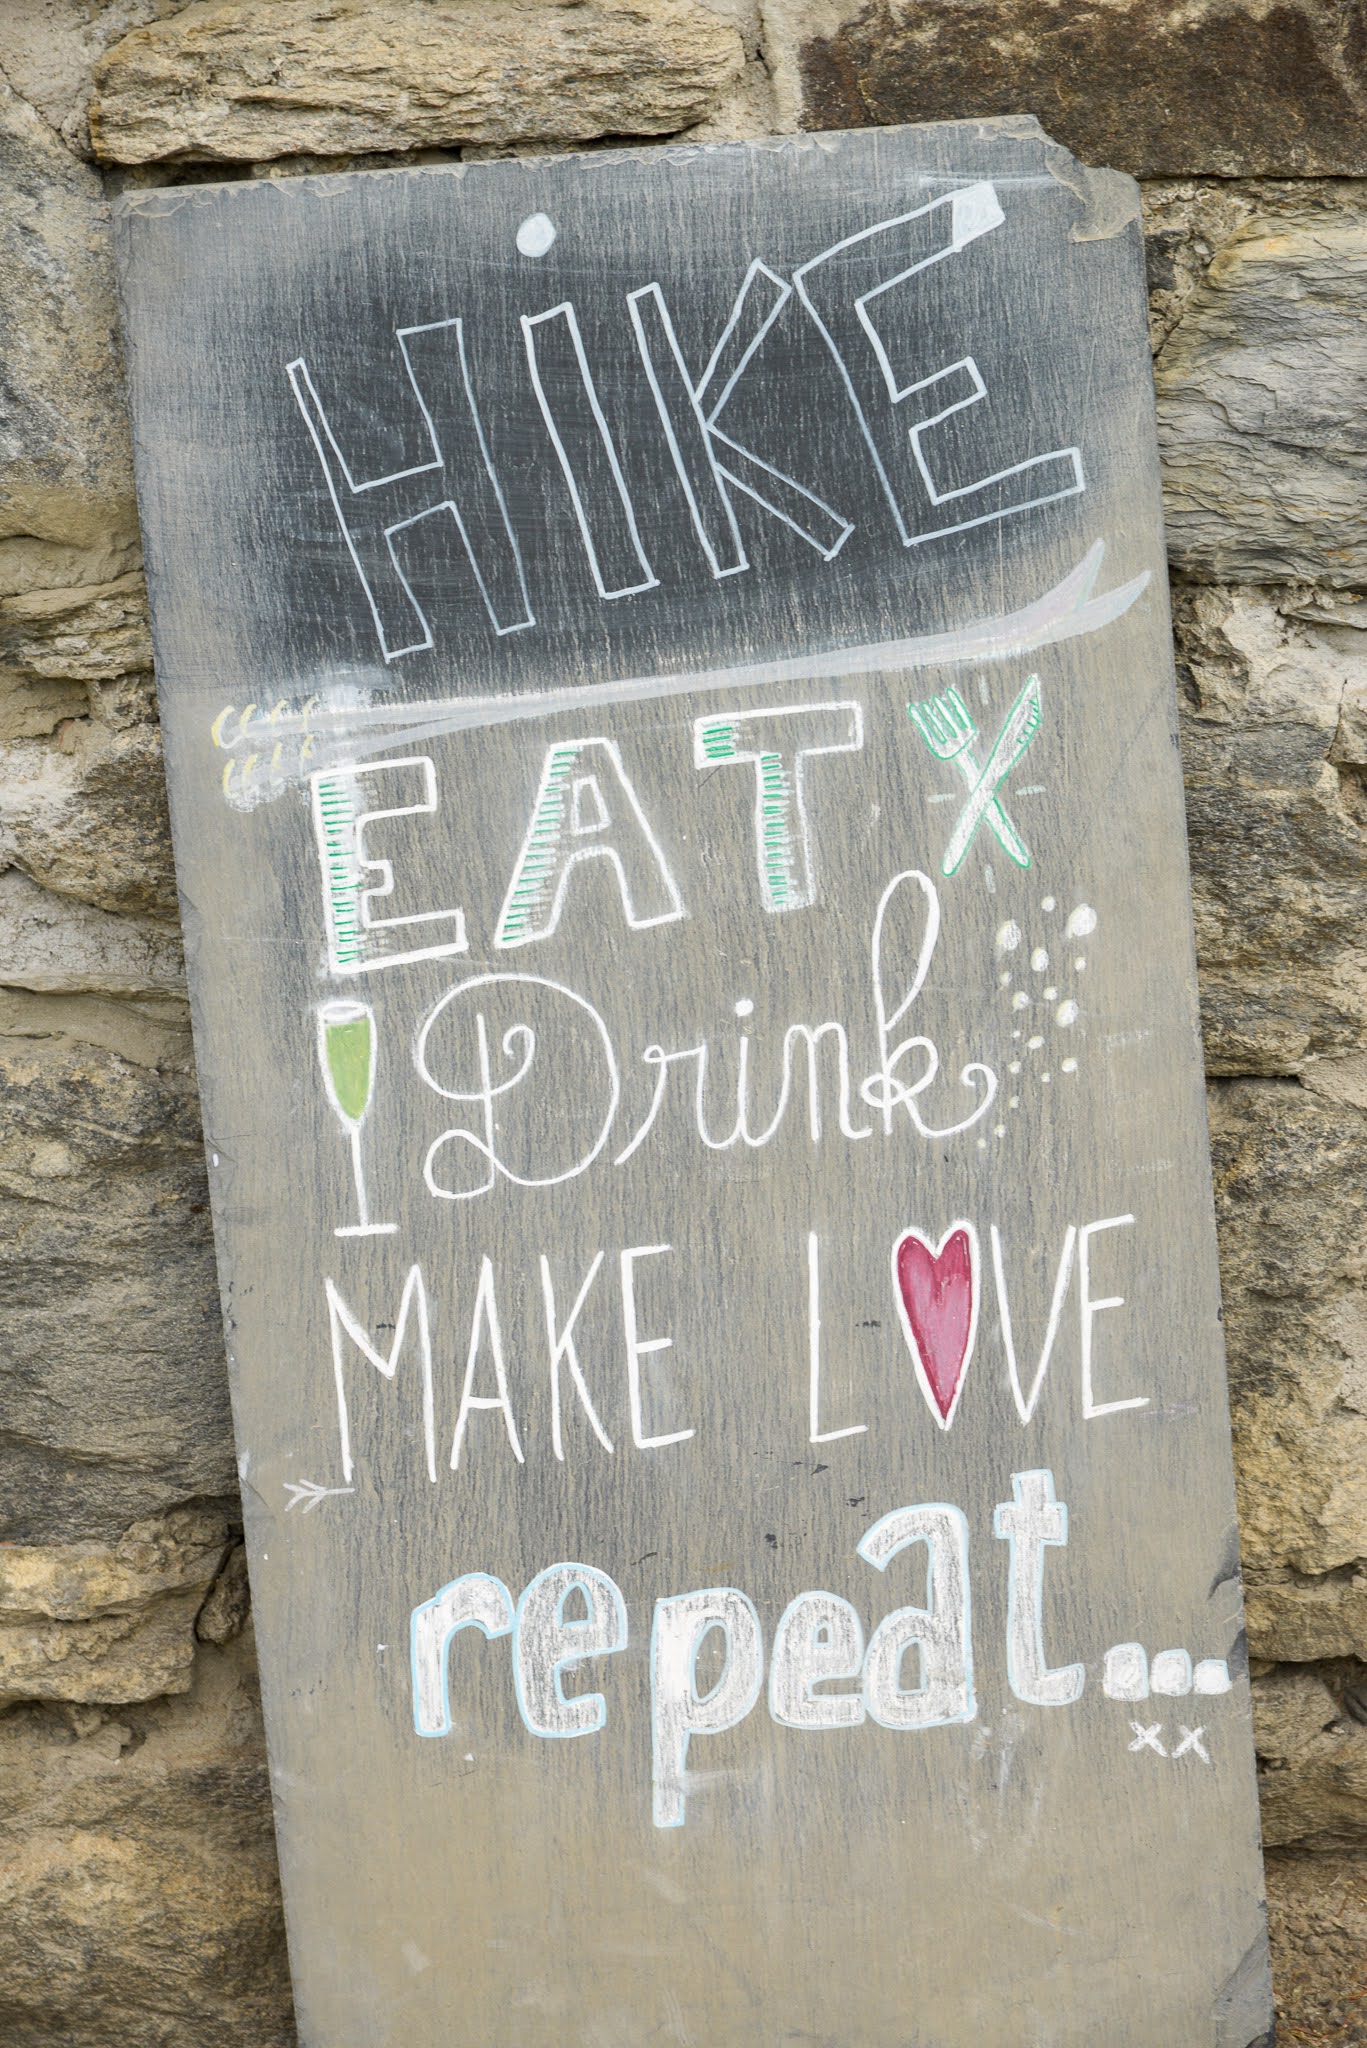 HIKE
EAT
Drink
MAKE LOVE
repeat...
xx